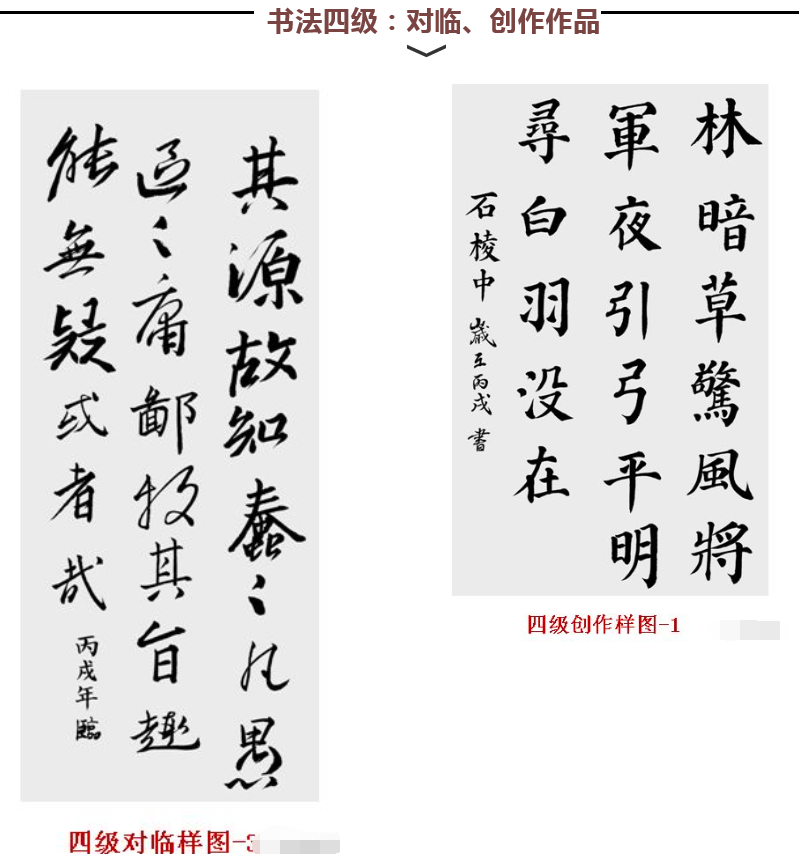 书法四级：对临、创作作品
其源故知蠢々凡愚
區々庸鄙投其旨趣
能無疑或者哉
丙戌年臨
四级对临样图-3
林暗草驚風將
軍夜引弓平明
尋白羽没在
石棱中 歲在丙戌 書
四级创作样图-1